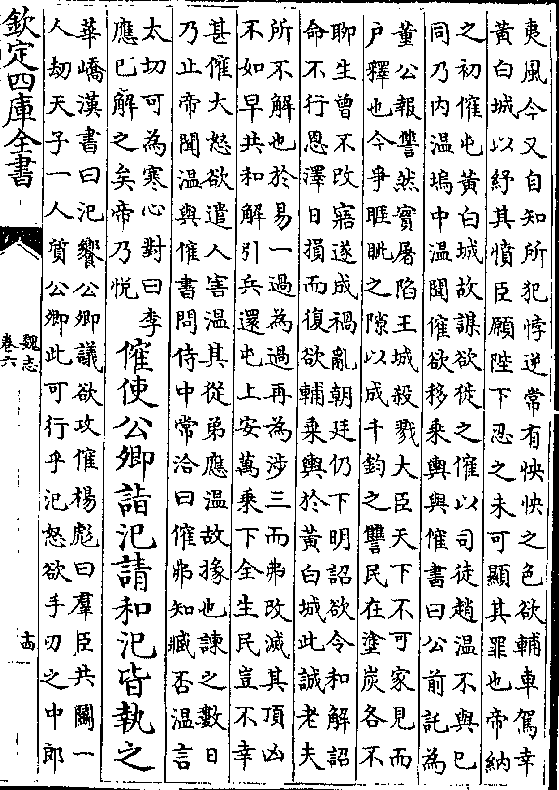 夷風今又自知所犯悖逆常有怏怏之色欲輔車駕幸
黄白城以紓其憤臣願陛下忍之未可顯其罪也帝納
之初傕屯黄白城故謀欲徙之傕以司徒趙溫不與已
同乃内溫塢中溫聞傕欲移乗輿與傕書曰公前託為
董公報讐然實屠陷王城殺戮大臣天下不可家見而
户釋也今爭睚眦之隙以成千鈞之讐民在塗炭各不
聊生曾不改寤遂成禍亂朝廷仍下明詔欲令和解詔
命不行恩澤日損而復欲輔乗輿於黄白城此誠老夫
所不解也於易一過為過再為涉三而弗改滅其頂凶
不如早共和解引兵還屯上安萬乗下全生民豈不幸
甚傕大怒欲遣人害溫其從弟應溫故掾也諫之數日
乃止帝聞溫與傕書問侍中常洽曰傕弗知臧否溫言
太切可為寒心對曰李
應已解之矣帝乃悦
傕使公卿詣汜請和汜皆執之
華嶠漢書曰汜饗公卿議欲攻傕楊彪曰羣臣共鬭一
人劫天子一人質公卿此可行乎汜怒欲手刃之中郎
欽定四庫全書
魏志
卷六
十四